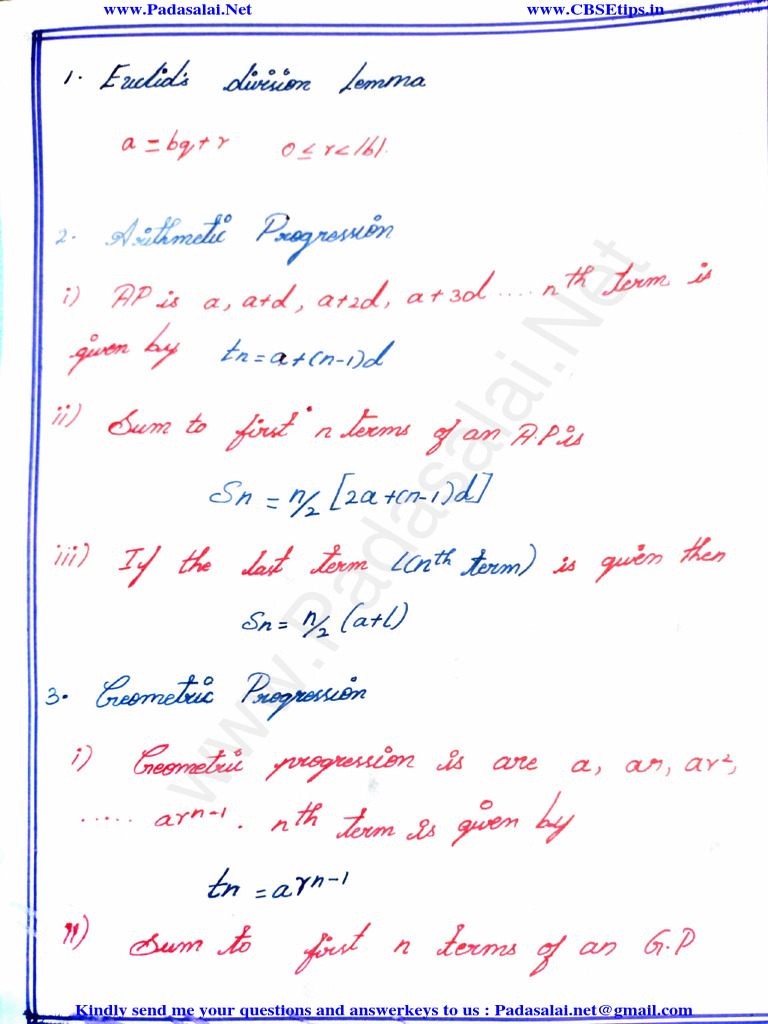 www.Padasalai.Net www.CBSEtips.in
1. Euclid's division Lemma
a = bq + r 0 ≤ r < |b|.
2. Arithmetic Progression
i) AP is a, a+d, a+2d, a+3d .... nth term is
given by tn = a+(n-1)d
ii) Sum to first n terms of an A.P is
Sn = n/2 [2a+(n-1)d]
iii) If the last term l(nth term) is given then
Sn = n/2 (a+l)
3. Geometric Progression
i) Geometric progression is are a, ar, ar²,
..... arⁿ⁻¹. nth term is given by
tn = arⁿ⁻¹
ii) Sum to first n terms of an G.P
www.Padasalai.Net
Kindly send me your questions and answerkeys to us : Padasalai.net@gmail.com